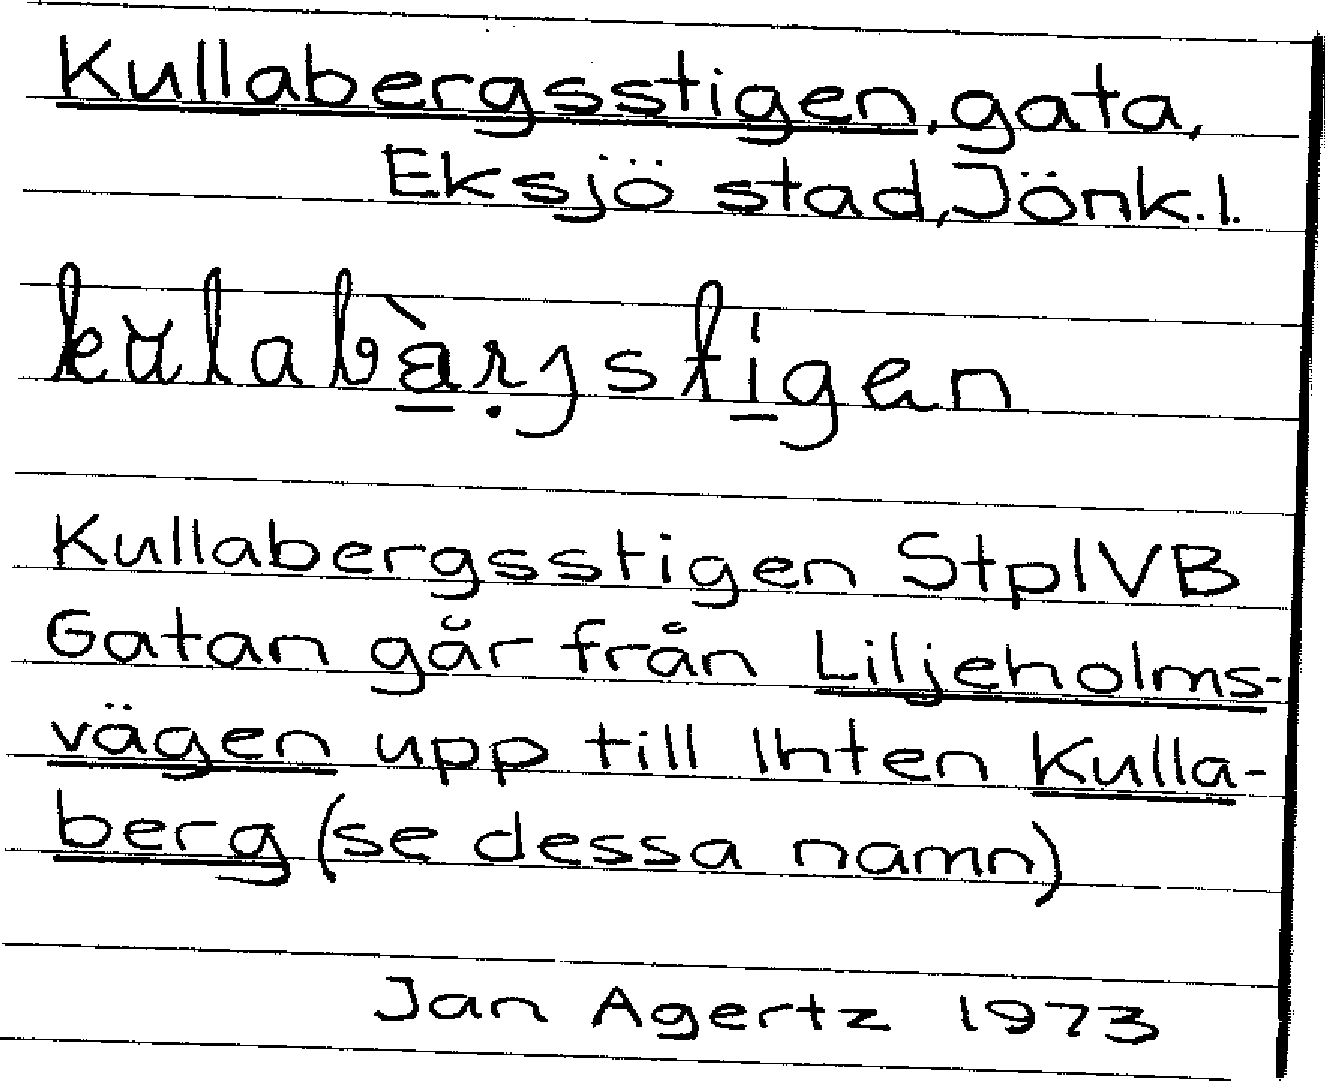 Kullabergsstigen, gata,
Eksjö stad, Jönk. l.
kulabà̱ṛjsti̱gen
Kullabergsstigen StplVB
Gatan går från Liljeholms-
vägen upp till lhten Kulla-
berg (se dessa namn)
Jan Agertz 1973